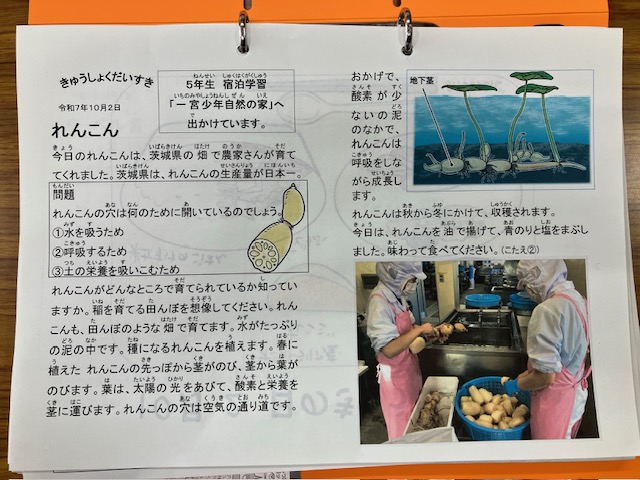 きゅうしょくだいすき
令和7年10月2日
れんこん
5年生 宿泊学習
「一宮少年自然の家」へ
出かけています。
今日のれんこんは、茨城県の畑で農家さんが育て
てくれました。茨城県は、れんこんの生産量が日本一。
問題
れんこんの穴は何のために開いているのでしょう。
①水を吸うため
②呼吸するため
③土の栄養を吸いこむため
れんこんがどんなところで育てられているか知ってい
ますか。稲を育てる田んぼを想像してください。れん
こんも、田んぼのような畑で育てます。水がたっぷり
の泥の中です。種になるれんこんを植えます。春に
植えた れんこんの先っぽから茎がのび、茎から葉が
のびます。葉は、太陽の光をあびて、酸素と栄養を
茎に運びます。れんこんの穴は空気の通り道です。
おかげで、
酸素が少
ないの泥
のなかで、
れんこんは
呼吸をしな
がら成長し
ます。
地下茎
れんこんは秋から冬にかけて、収穫されます。
今日は、れんこんを油で揚げて、青のりと塩をまぶし
ました。味わって食べてください。(こたえ②)